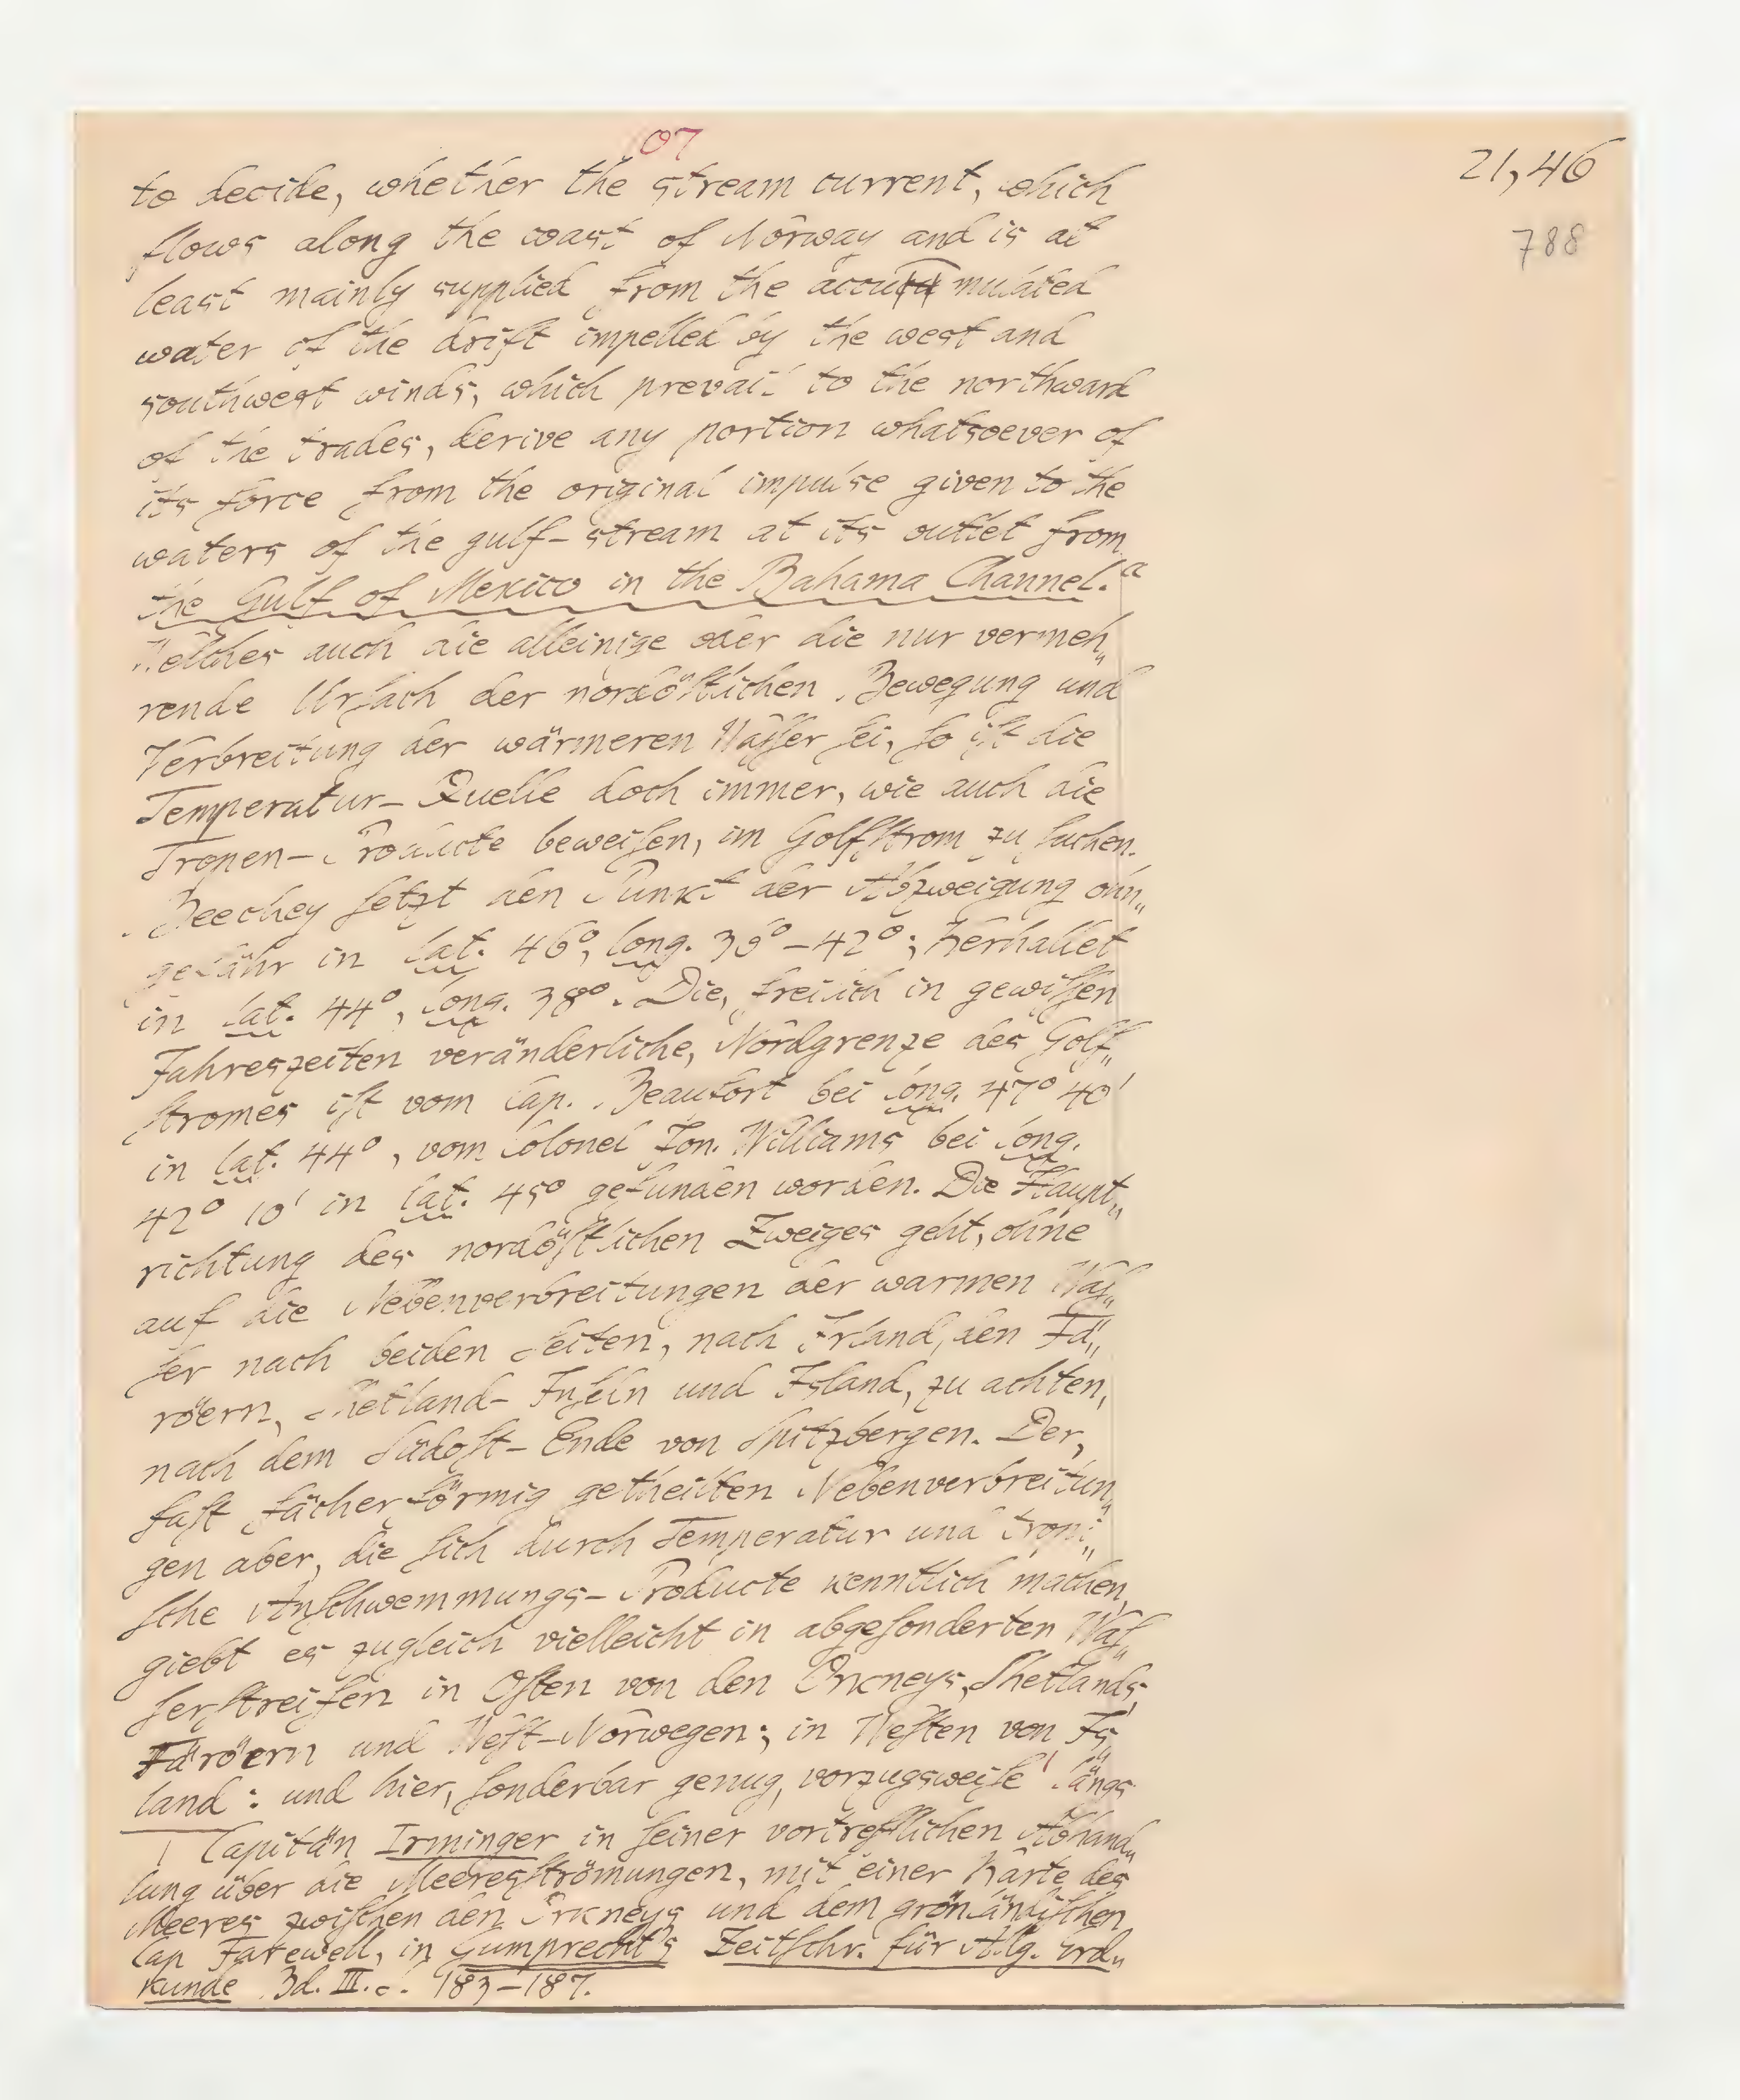 07
21,46
788
to decide, whether the stream current, which
flows along the coast of Norway and is at
least mainly supplied from the accumulated
water of the drift impelled by the west and
southwest winds, which prevail to the northward
of the trades, derive any portion whatsoever of
its force from the original impulse given to the
waters of the gulf-stream at its outlet from
the Gulf of Mexico in the Bahama Channel.“
Welches auch die alleinige oder die nur vermeh„
rende Urſach der nordöſtlichen Bewegung und
Verbreitung der wärmeren Waſſer ſei, ſo iſt die
Temperatur-Quelle doch immer, wie auch die
Tropen-Producte beweiſen, im Golfſtrom zu ſuchen.
Beechey ſetzt den Punkt der Abzweigung ohn„
gefähr in lat. 46°, long. 39°-42°; Kerhallet
in lat. 44°, long. 38°. Die, freilich in gewiſſen
Jahreszeiten veränderliche, Nordgrenze des Golf„
ſtromes iſt vom Cap. Beaufort bei long. 47° 40'
in lat. 44°, vom Colonel Jon. Williams bei long.
42° 10' in lat. 45° gefunden worden. Die Haupt„
richtung des nordöſtlichen Zweiges geht, ohne
auf die Nebenverbreitungen der warmen Waſ„
ſer nach beiden Seiten, nach Irland, den Fä„
röern, Shetland-Inſeln und Island, zu achten,
nach dem Südoſt-Ende von Spitzbergen. Der,
faſt fächerförmig getheilten Nebenverbreitun„
gen aber, die ſich durch Temperatur und tropi„
ſche Anſchwemmungs-Producte kenntlich machen,
giebt es zugleich vielleicht in abgeſonderten Waſ„
ſerſtreifen in Oſten von den Orkneys, Shetlands,
Färöern und Weſt-Norwegen; in Weſten von Is„
land: und hier, ſonderbar genug, vorzugsweiſe' längs
1 Capitän Irminger in ſeiner vortrefflichen Abhand„
lung über die Meeresſtrömungen, mit einer Karte des
Meeres zwiſchen den Orkneys und dem grönländiſchen
Cap Farewell, in Gumprecht's Zeitſchr. für Allg. Erd„
kunde Bd. III. S. 183-187.